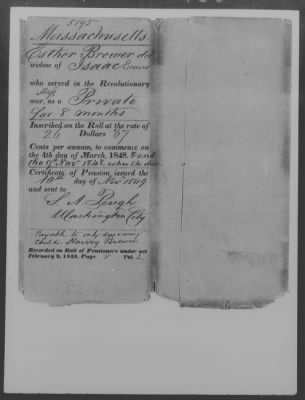 5195
Massachusetts
Esther Brewer decd
widow of Isaac Brewer
who served in the Revolutionary
war, as a Private
for 8 months
Inscribed on the Roll at the rate of
26 Dollars 67
Cents per annum, to commence on
the 4th day of March, 1848. & end
the 9th Nov 1848. when she died.
Certificate of Pension issued the
10th day of Nov 1849
and sent to
S. A. Pugh
Washington City
Payable to only surviving
child Harvey Brewer
Recorded on Roll of Pensioners under act
February 2, 1848, Page Vol.